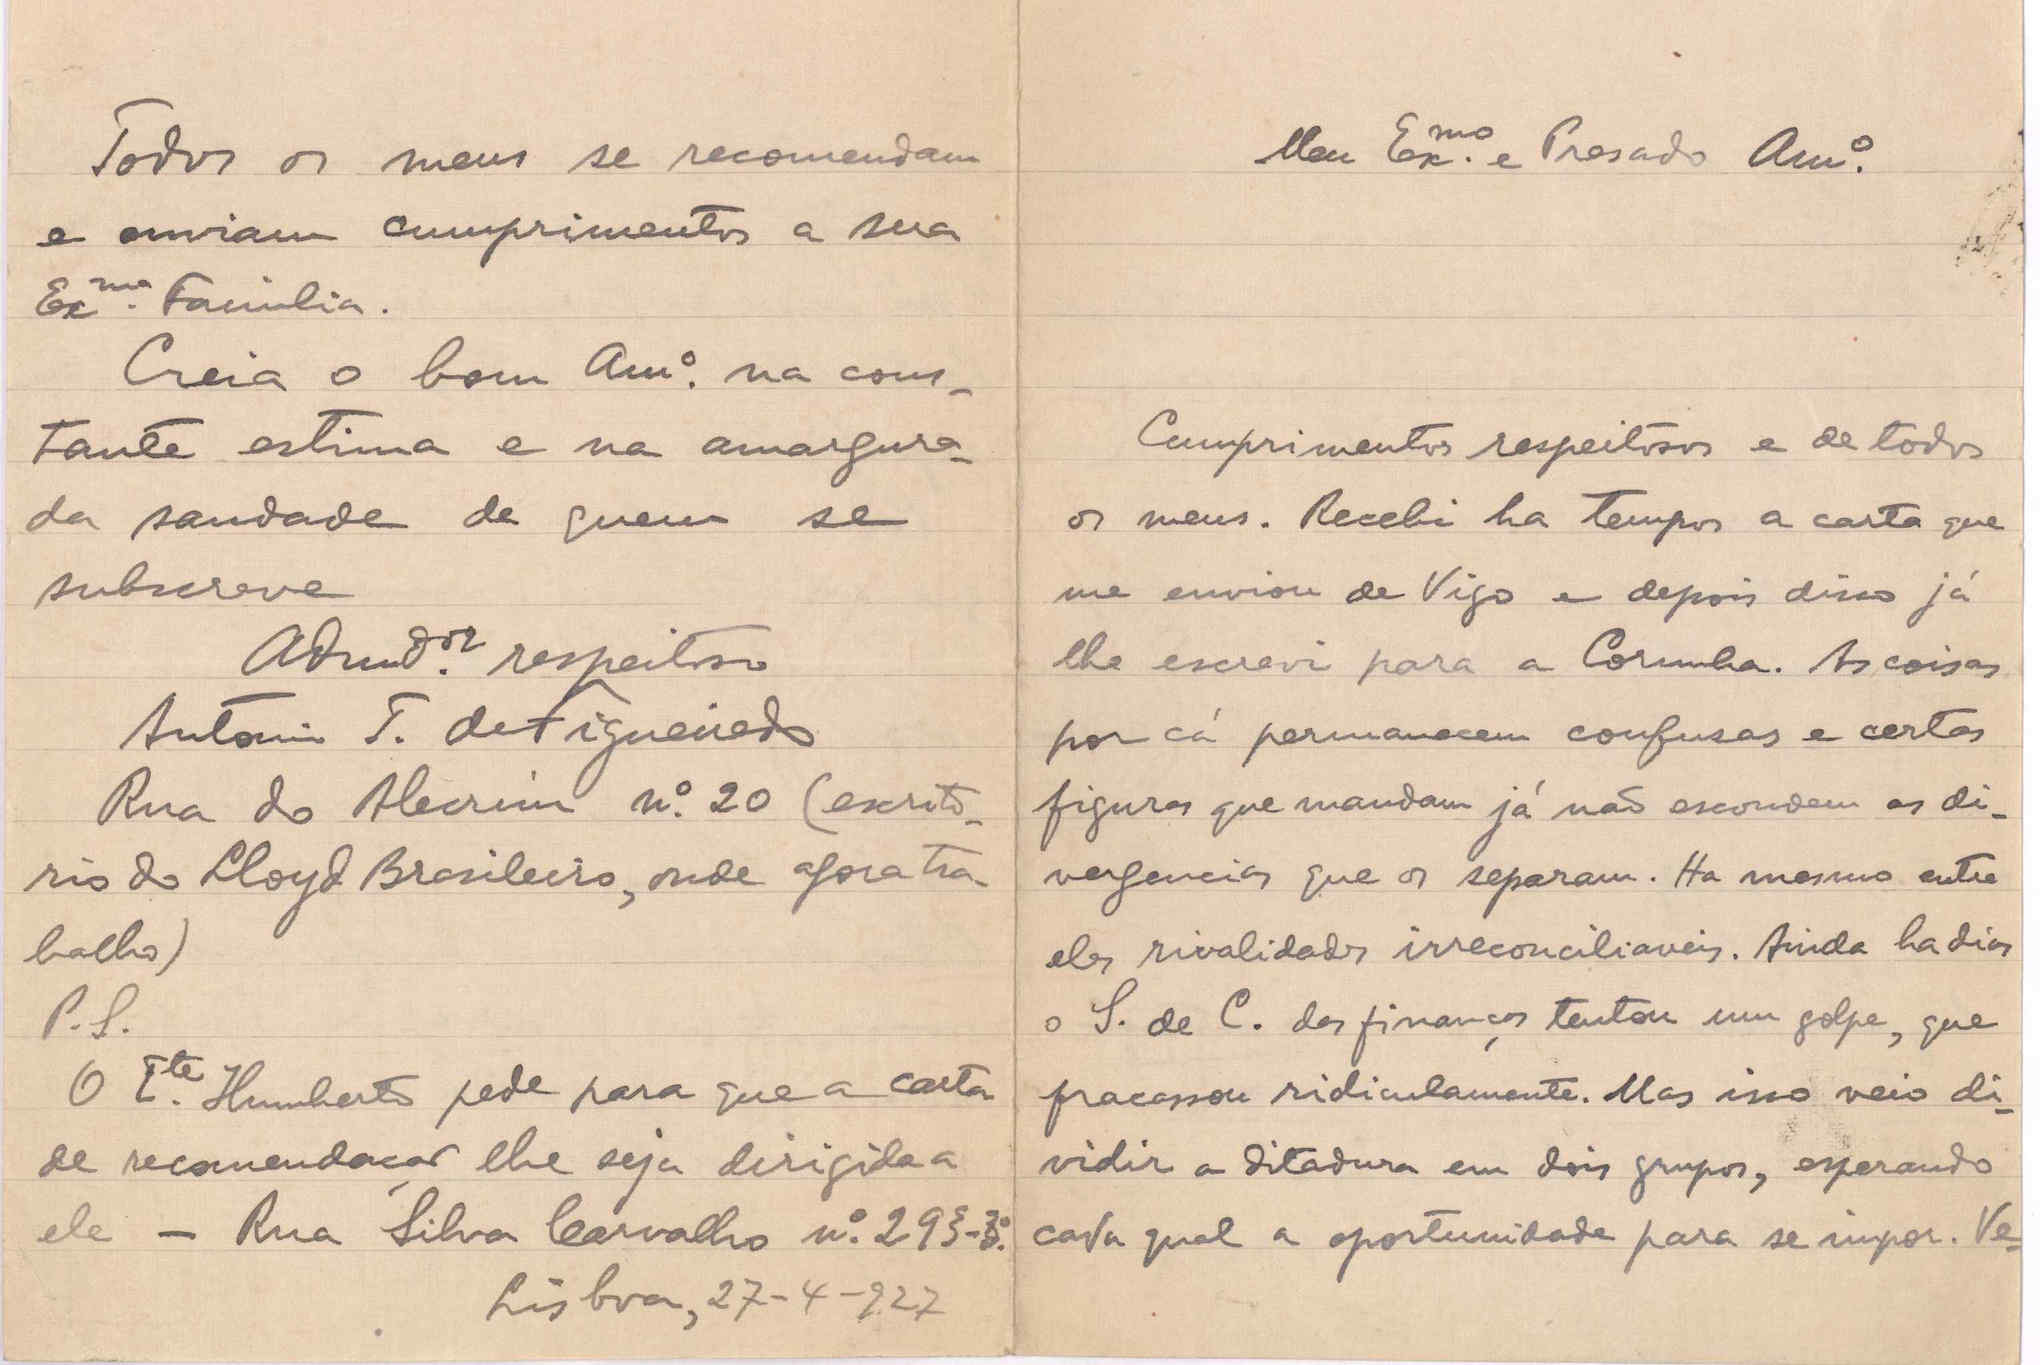 Todos os meus se recomendam
e enviam cumprimentos a sua
Exma. Familia.
Creia o bom Amº. na cons-
tante estima e na amargura-
da saudade de quem se
subscreve
Admdor. respeitoso
Antonio T. de Figueiredo
Rua do Alecrim nº. 20 (escritó-
rio do Lloyd Brasileiro, onde agora tra-
balho)
P.S.
O Tte. Humberto pede para que a carta
de recomendação lhe seja dirigida a
ele - Rua Silva Carvalho nº. 293-3º.
Lisboa, 27-4-927
Meu Exmo. e Presado Amº.
Cumprimentos respeitosos e de todos
os meus. Recebi ha tempos a carta que
me enviou de Vigo e depois disso já
lhe escrevi para a Corunha. As coisas
por cá permanecem confusas e certas
figuras que mandam já não escondem as di-
vergencias que os separam. Ha mesmo entre
eles rivalidades irreconciliaveis. Ainda ha dias
o S. de C. das finanças tentou um golpe, que
fracassou ridiculamente. Mas isso veio di-
vidir a ditadura em dois grupos, esperando
cada qual a oportunidade para se impor. Ve-